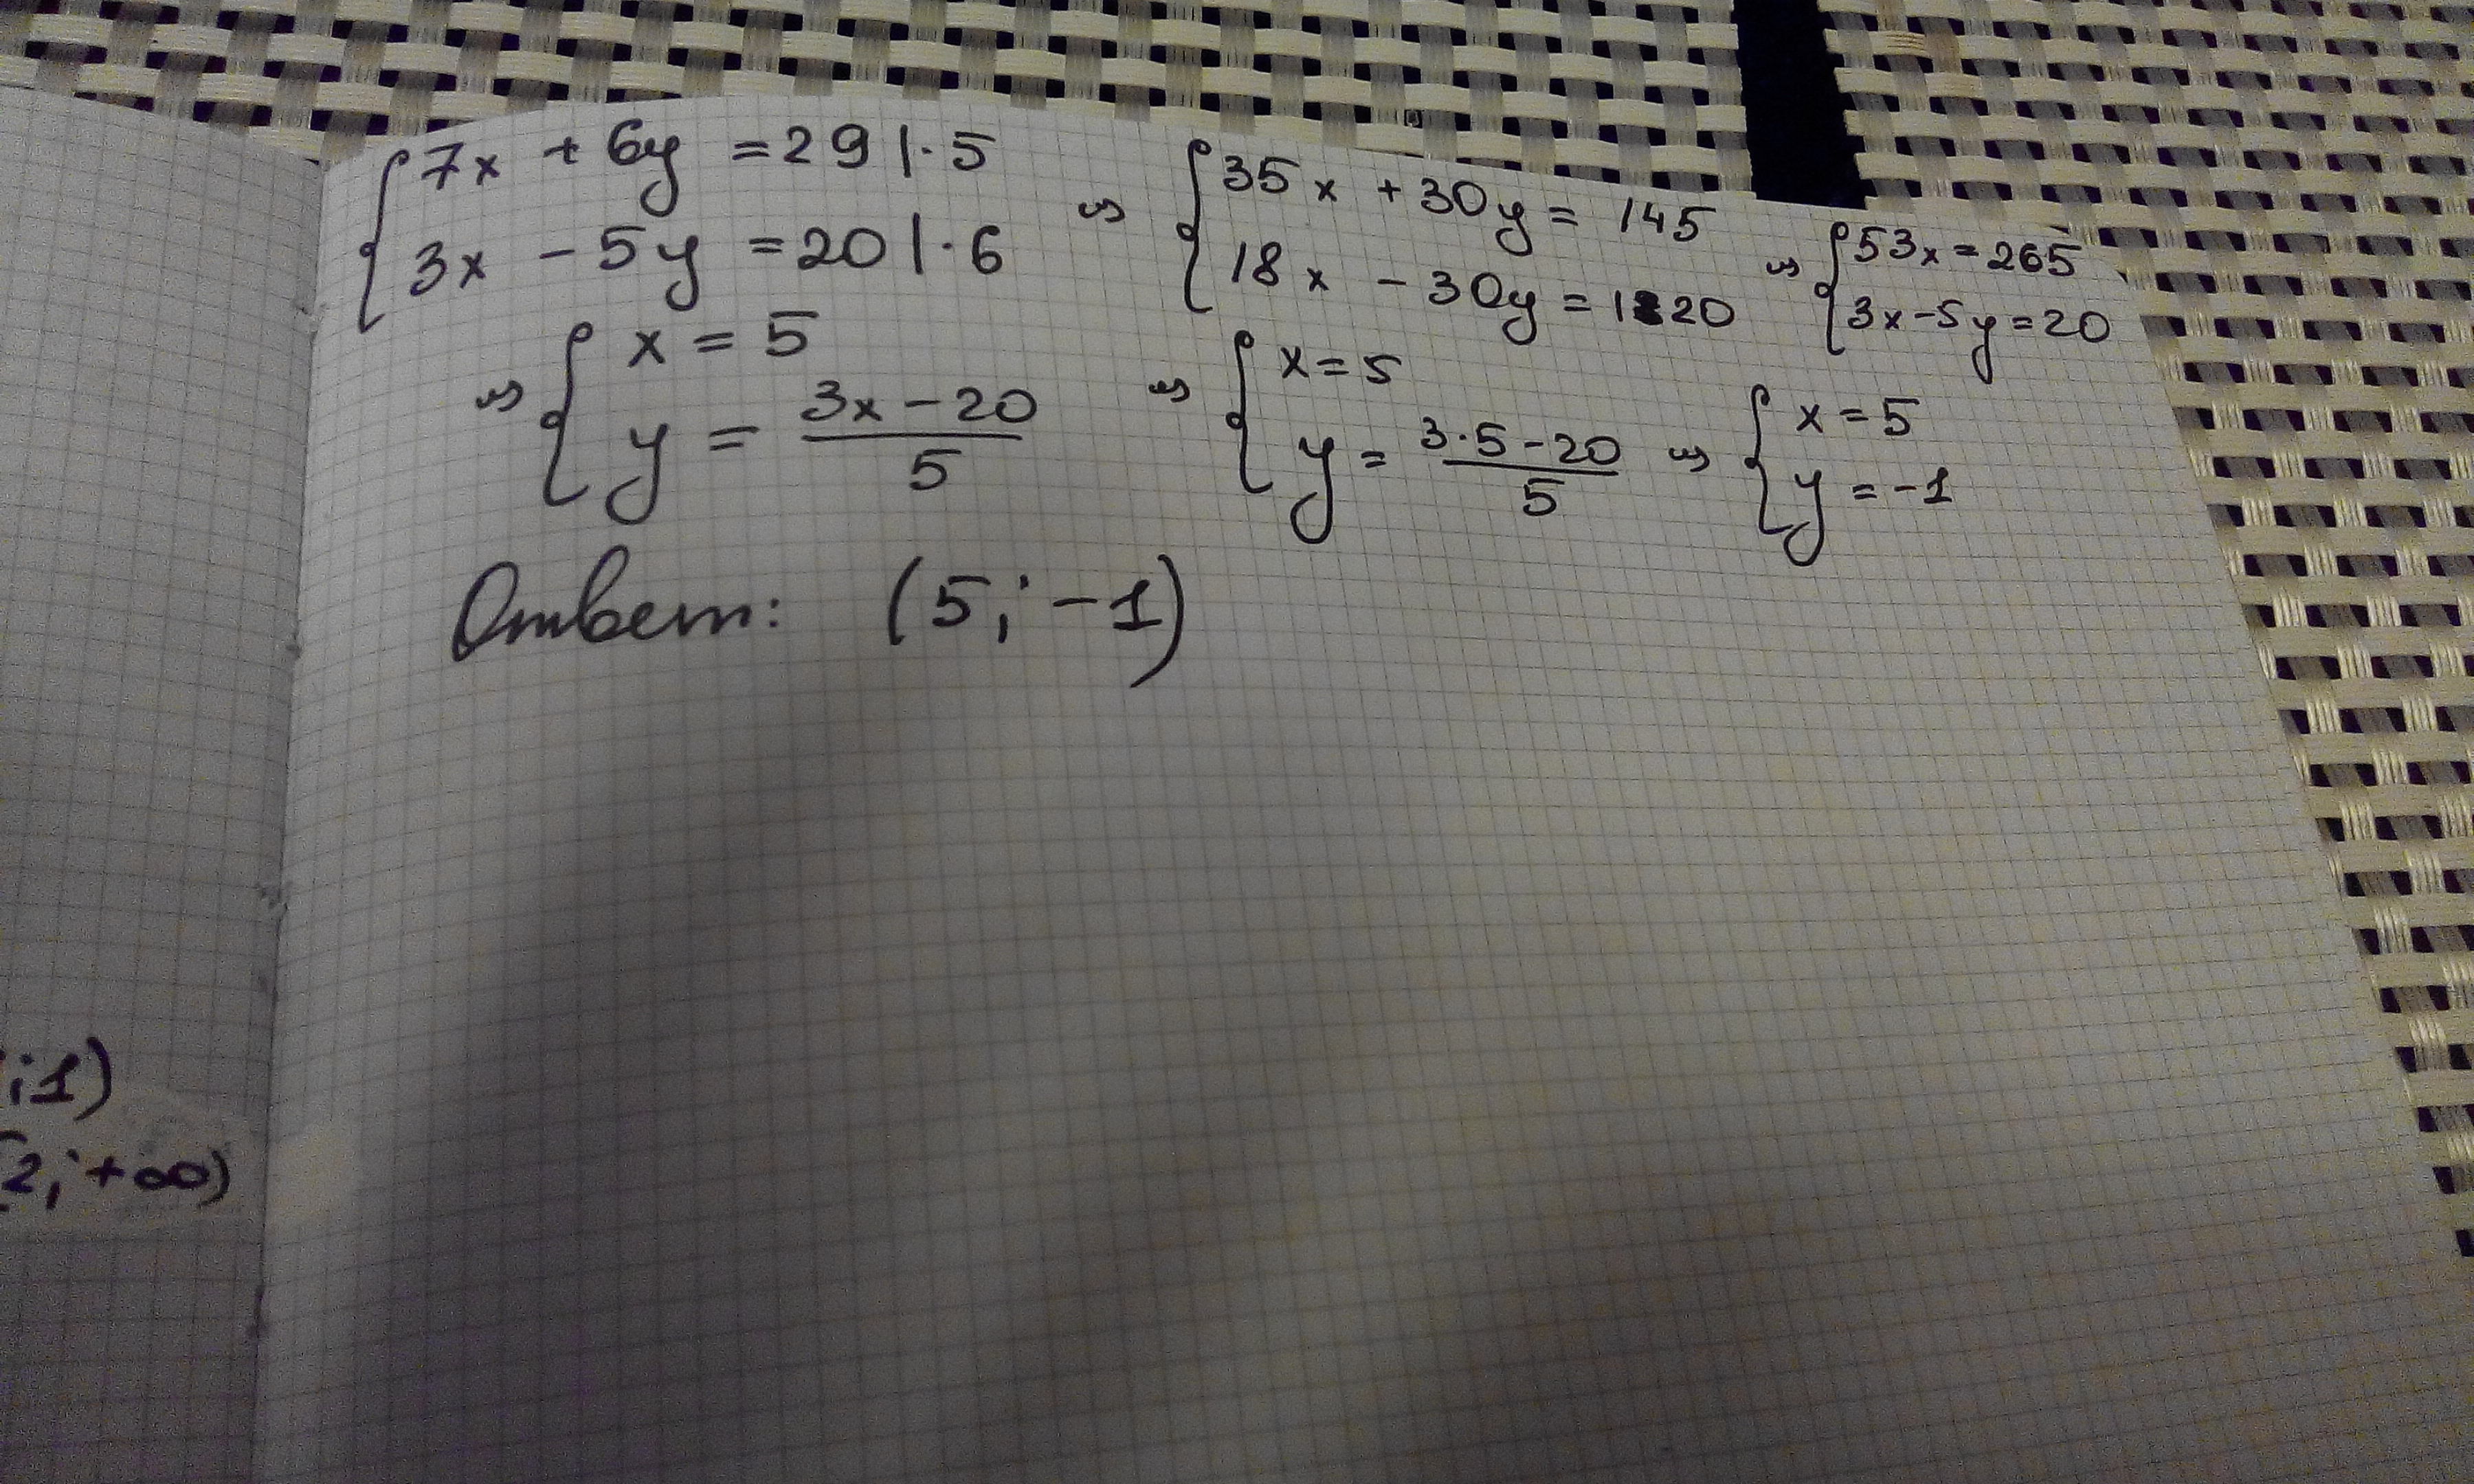 { 7x + 6y = 29 | · 5
{ 3x - 5y = 20 | · 6
⇔ { 35x + 30y = 145
{ 18x - 30y = 120
⇔ { 53x = 265
{ 3x - 5y = 20
⇔ { x = 5
{ y = (3x - 20)/5
⇔ { x = 5
{ y = (3·5 - 20)/5
⇔ { x = 5
{ y = -1
Ответ: (5; -1)
;1)
2; +∞)